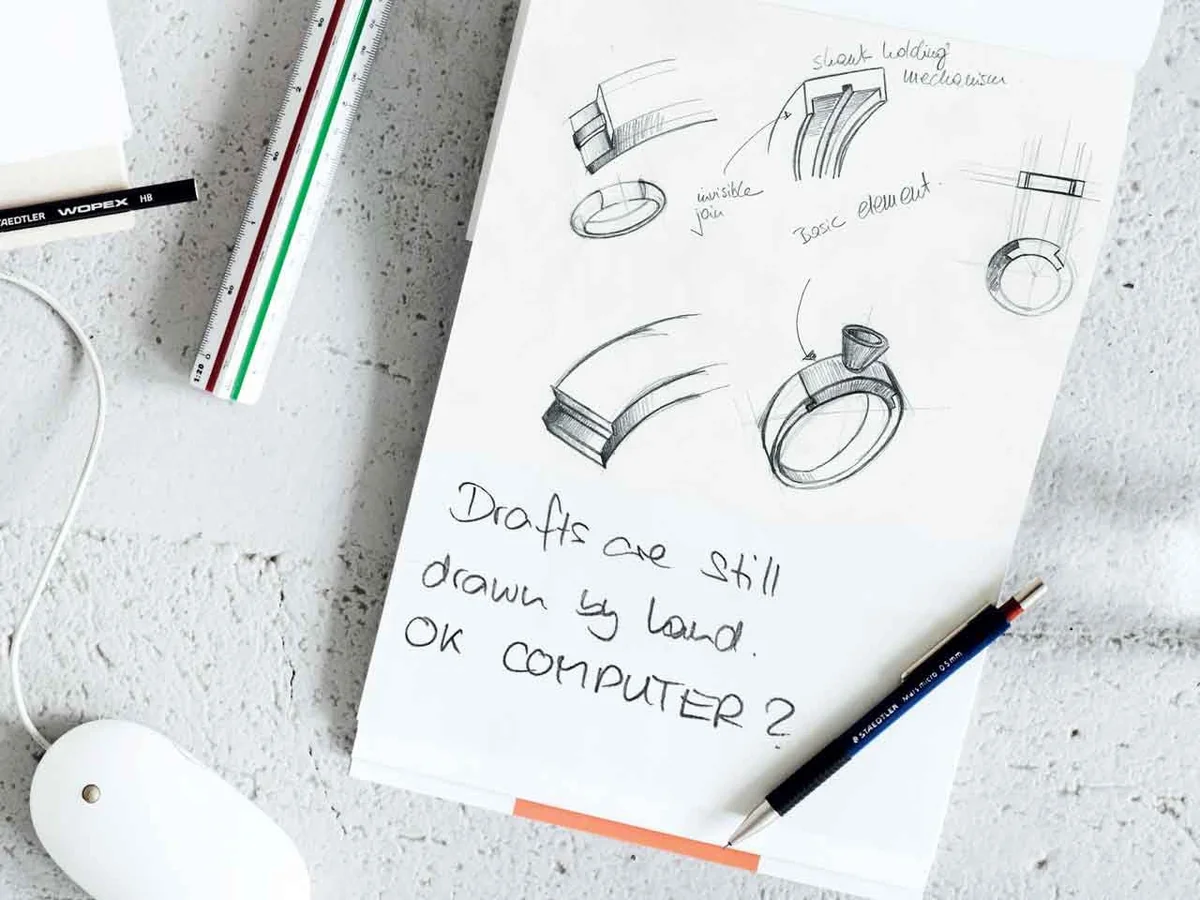 shank holding
mechanism
invisible
join
Basic element.
Drafts are still
drawn by hand.
OK COMPUTER?
STAEDTLER WOPEX HB
1:20
STAEDTLER Mars micro 0.5mm